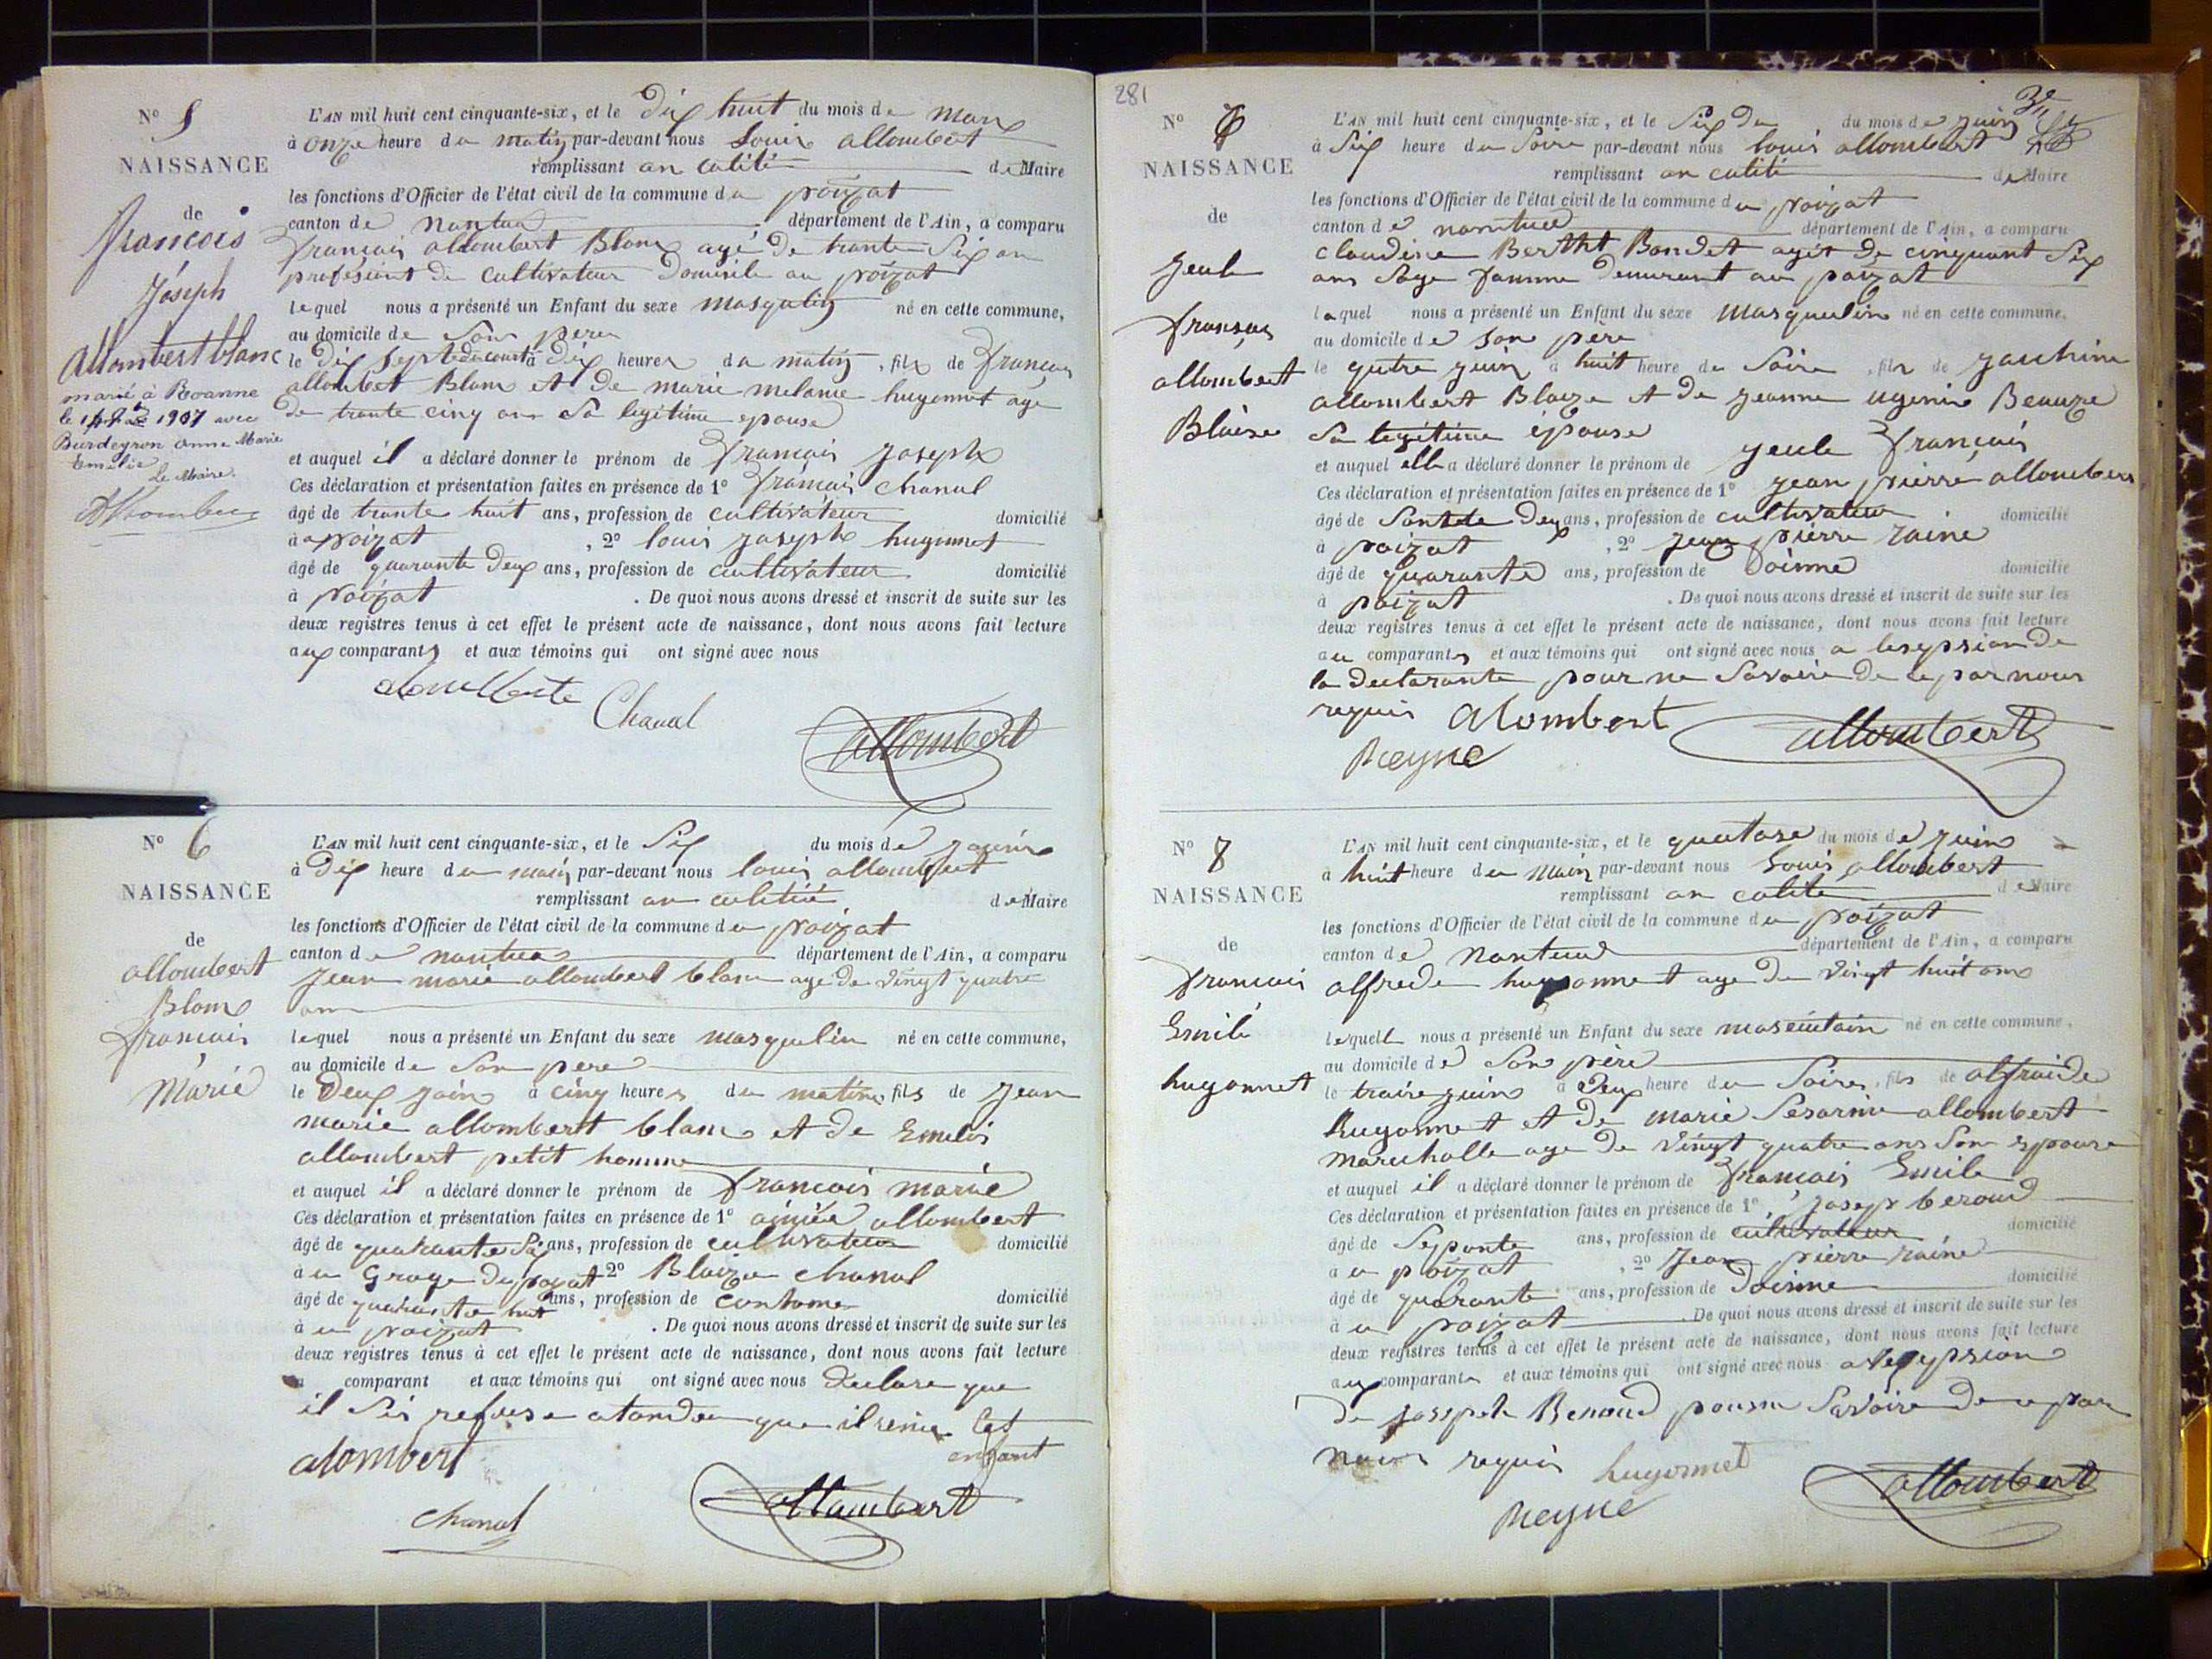 N° 5
NAISSANCE
de
françois
Joseph
Allombert blanc
marié à Roanne
le 1907 avec
Burdeyron Anne Marie
Emélie
Le Maire.
L'AN mil huit cent cinquante-six, et le Dix huit du mois de mars
à onze heure du matin par-devant nous Louis allombert
remplissant an calité de Maire
les fonctions d'Officier de l'état civil de la commune du poizat
canton de Nantua département de l'Ain, a comparu
francois allombert Blanc agé de trante Six an
profesiont de cultivateur Domicile au poizat
lequel nous a présenté un Enfant du sexe masqulin né en cette commune,
au domicile de Son pere
le dix sept du court à dix heures du matin, fils de francois
allombert Blanc et de marie melanie hugonnet age
de trante cinq ans Sa legitime epouse
et auquel il a déclaré donner le prénom de francois Joseph
Ces déclaration et présentation faites en présence de 1° francois Chanal
âgé de trante huit ans, profession de cultivateur domicilié
à poizat , 2° louis Joseph hugonnet
âgé de quarante Deux ans, profession de cultivateur domicilié
à poizat . De quoi nous avons dressé et inscrit de suite sur les
deux registres tenus à cet effet le présent acte de naissance, dont nous avons fait lecture
aux comparants et aux témoins qui ont signé avec nous
Chanal
allombert
N° 6
NAISSANCE
de
allombert
Blanc
francois
Marie
L'AN mil huit cent cinquante-six, et le Six du mois de
à Dix heure du par-devant nous louis allombert
remplissant an calitié de Maire
les fonctions d'Officier de l'état civil de la commune du poizat
canton de nantua département de l'Ain, a comparu
Jean marie allombert blanc age de vingt quatre
ans
lequel nous a présenté un Enfant du sexe masquelin né en cette commune,
au domicile de Son pere
le Deux Join à cinq heures du matin fils de Jean
marie allombert blanc et de
allombert petit homme
et auquel il a déclaré donner le prénom de francois marie
Ces déclaration et présentation faites en présence de 1° aimée allombert
âgé de quarante Six ans, profession de cultivateur domicilié
à u 2° Blaize chanal
âgé de quarante huit ans, profession de domicilié
à u poizat . De quoi nous avons dressé et inscrit de suite sur les
deux registres tenus à cet effet le présent acte de naissance, dont nous avons fait lecture
comparant et aux témoins qui ont signé avec nous Declare que
il refuse que il Cet
enfant
alombert
allombert
Chanal
281
N° 7
NAISSANCE
de
Jeule
fransois
allombert
Blaise
L'AN mil huit cent cinquante-six, et le Six du du mois de Juin
à Six heure du Soire par-devant nous louis allombert
remplissant an calité de Maire
les fonctions d'Officier de l'état civil de la commune du poizat
canton de nantua département de l'Ain, a comparu
claudine Bertht Bondet agét de cinquant Six
ans Sage famme demurant au poizat
laquel nous a présenté un Enfant du sexe Masqueline né en cette commune,
au domicile de Son père
le qutre juin à huit heure du Soire , fils de Jauchine
allombert Blaize et de Jeanne ugenie Beauze
Sa legitime épouse
et auquel elle a déclaré donner le prénom de Jeule Francois
Ces déclaration et présentation faites en présence de 1° Jean pierre allombers
âgé de ans, profession de cultivateur domicilié
à poizat , 2° Jean pierre raine
âgé de quarante ans, profession de Doinne domicilié
à poizat . De quoi nous avons dressé et inscrit de suite sur les
deux registres tenus à cet effet le présent acte de naissance, dont nous avons fait lecture
au comparantes et aux témoins qui ont signé avec nous a lesepsion de
la declarante pour ne Savoire de ce par nous
requis alombert allombert
Reyne
N° 8
NAISSANCE
de
francois
Emile
hugonnet
L'AN mil huit cent cinquante-six, et le quatorse du mois de juin
à huit heure du Main par-devant nous Louis allombert
remplissant an calite de Maire
les fonctions d'Officier de l'état civil de la commune du poizat
canton de Nantua département de l'Ain, a comparu
alfrede hugonnet age de vingt huit ans
lequell nous a présenté un Enfant du sexe né en cette commune,
au domicile de Son père
le traize juin à Deux heure du Soire, fils de alfraide
hugonnet et de marie Sesarine allombert
Marichalle age de vingt quatre ans Son epouse
et auquel il a déclaré donner le prénom de francois Emile
Ces déclaration et présentation faites en présence de 1° Josepr beroud
âgé de Sepante ans, profession de cultivateur domicilié
à u poizat , 2° Jean pierre raine
âgé de quarante ans, profession de Doinne domicilié
à u poizat . De quoi nous avons dressé et inscrit de suite sur les
deux registres tenus à cet effet le présent acte de naissance, dont nous avons fait lecture
aux comparants et aux témoins qui ont signé avec nous
De Josspeh Beroud Savoire de ce par
nous requis hugonnet allombert
Reyne